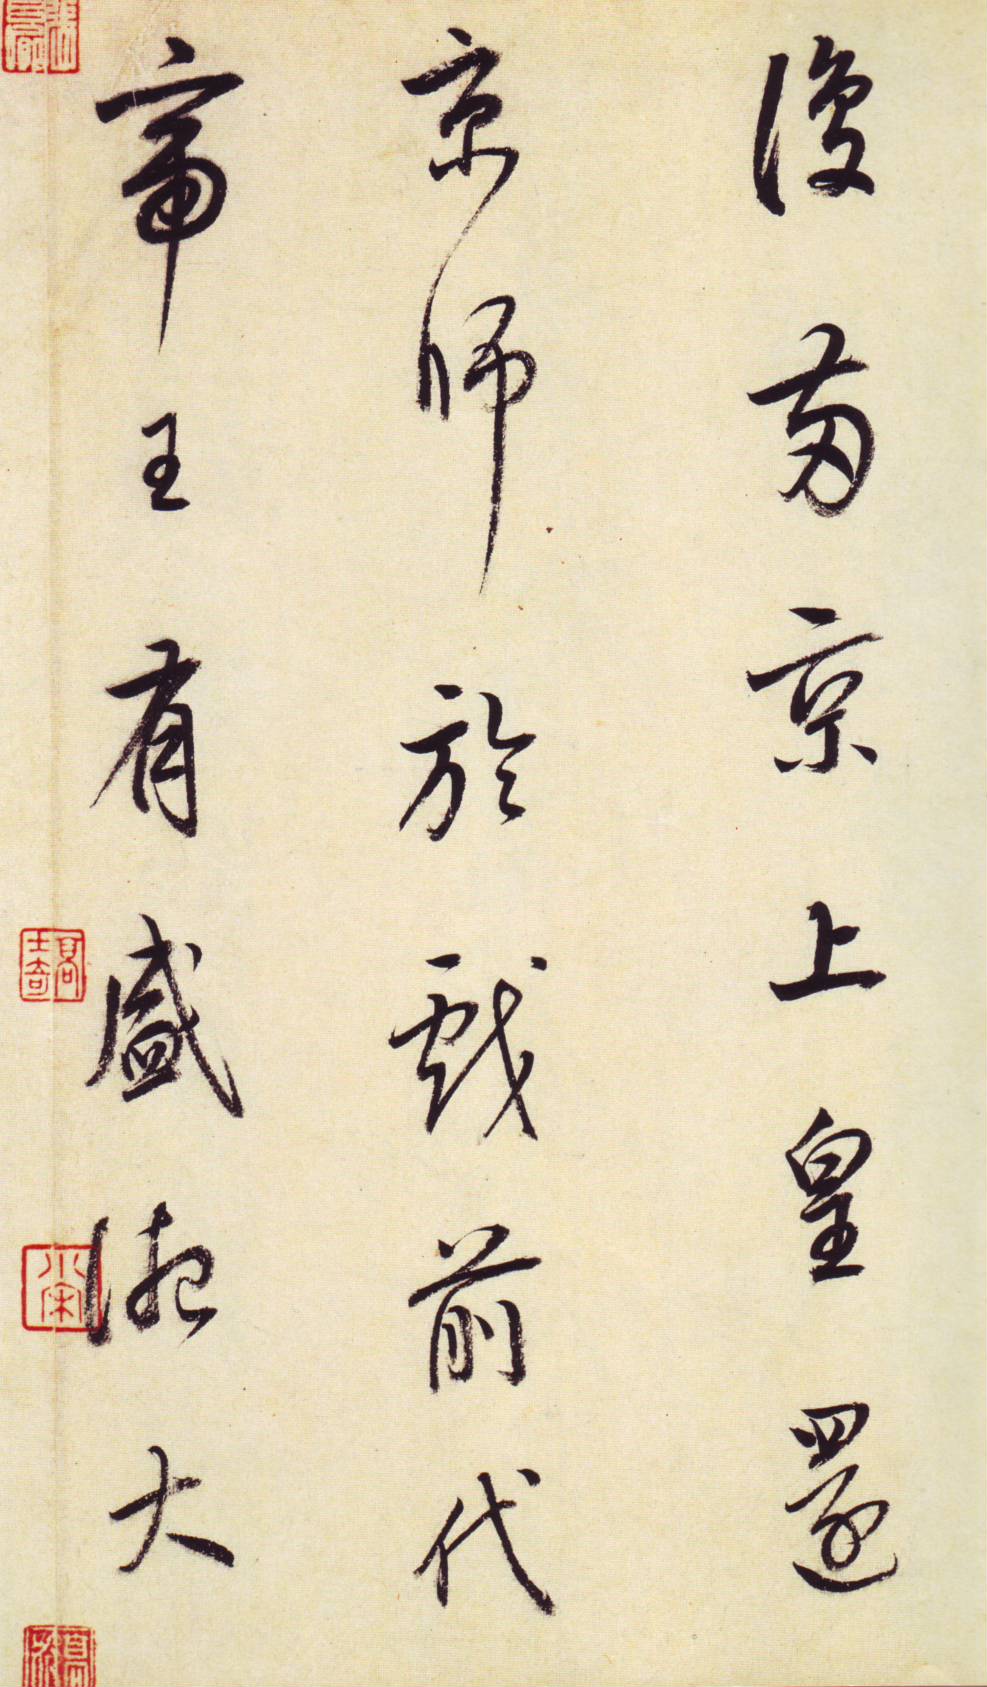 復兩京上皇還
京師於戲前代
帝王有盛德大
士奇